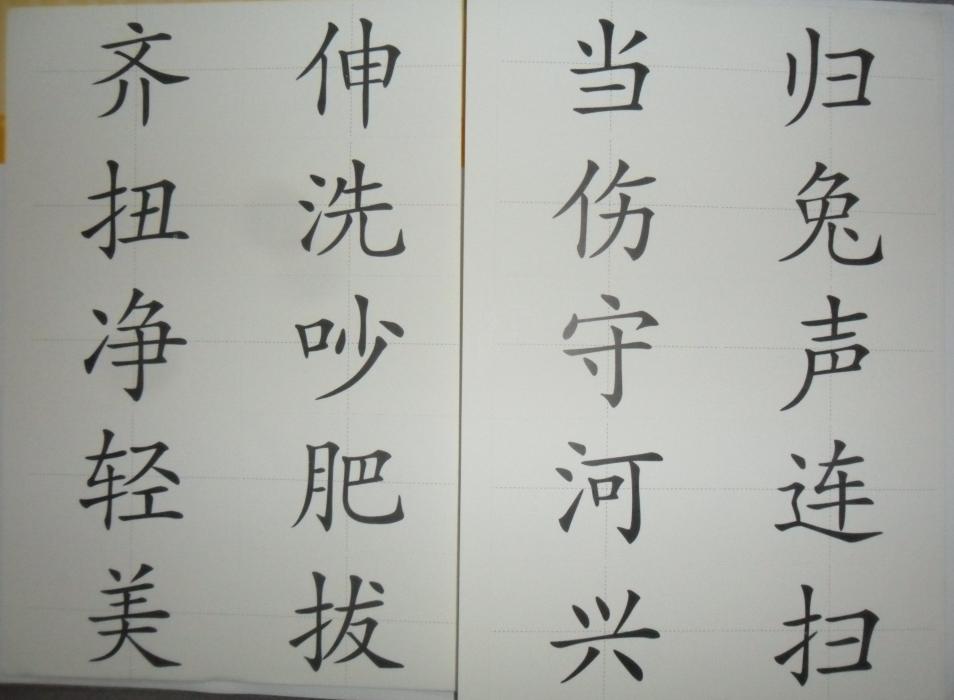 齐 伸
扭 洗
净 吵
轻 肥
美 拔
当 归
伤 兔
守 声
河 连
兴 扫